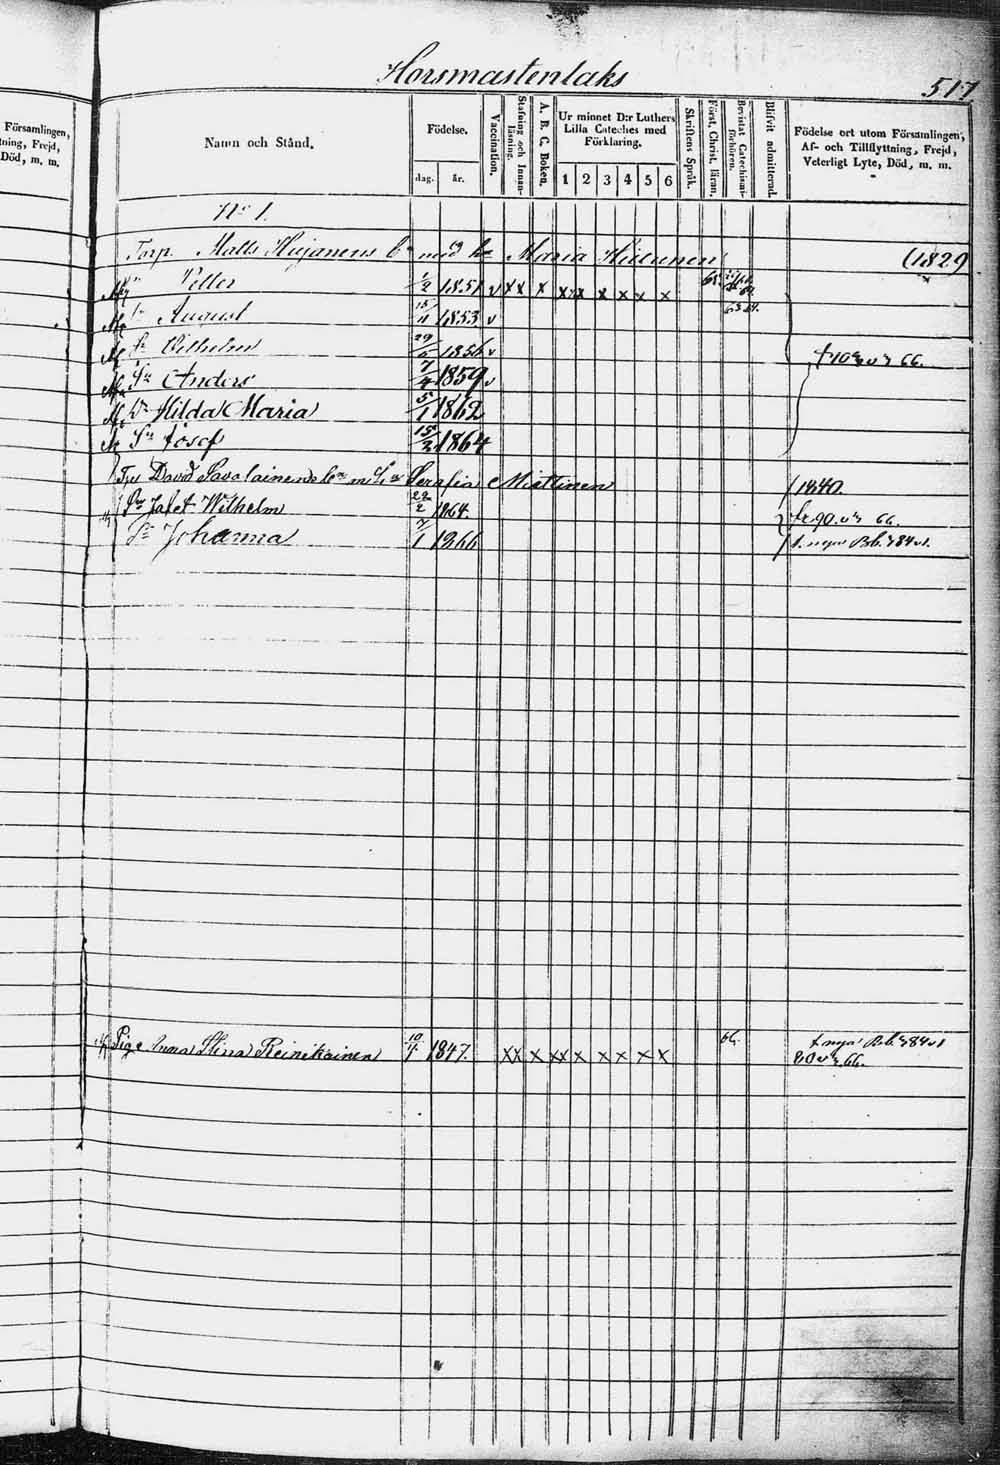 Horsmastenlaks
517
Församlingen,
ning, Frejd,
Död, m. m.
Namn och Stånd.
Födelse.
dag.
år.
Vaccination.
Stafning och Innan-
läsning.
A. B. C. Boken.
Ur minnet D:r Luthers
Lilla Cateches med
Förklaring.
1 2 3 4 5 6
Skriftens Språk.
Först. Christ. läran.
Bevistat Catechismi-
förhören.
Blifvit admitterad.
Födelse ort utom Församlingen,
Af- och Tillflyttning, Frejd,
Veterligt Lyte, Död, m. m.
No 1.
Torp. Matts Hujanens med Maria (1829
Petter 1/2 1851 v x x x x x x x x x x
August 15/11 1853 v 63 64.
Wilhelm 29/5 1856 v
Sn Anders 7/4 1859 v 66.
Dr Hilda Maria 5/1 1862
Sn Josef 15/2 1864
David Savolainens Serafia Miettinen 1840.
Sn Jafet Wilhelm 22/2 1864. 66.
Johanna 7/1 1866 Bb. 784
Pig. Anna Stina Reinikainen 1847. xx x xx x x x x x 66. Bb. 784
66.